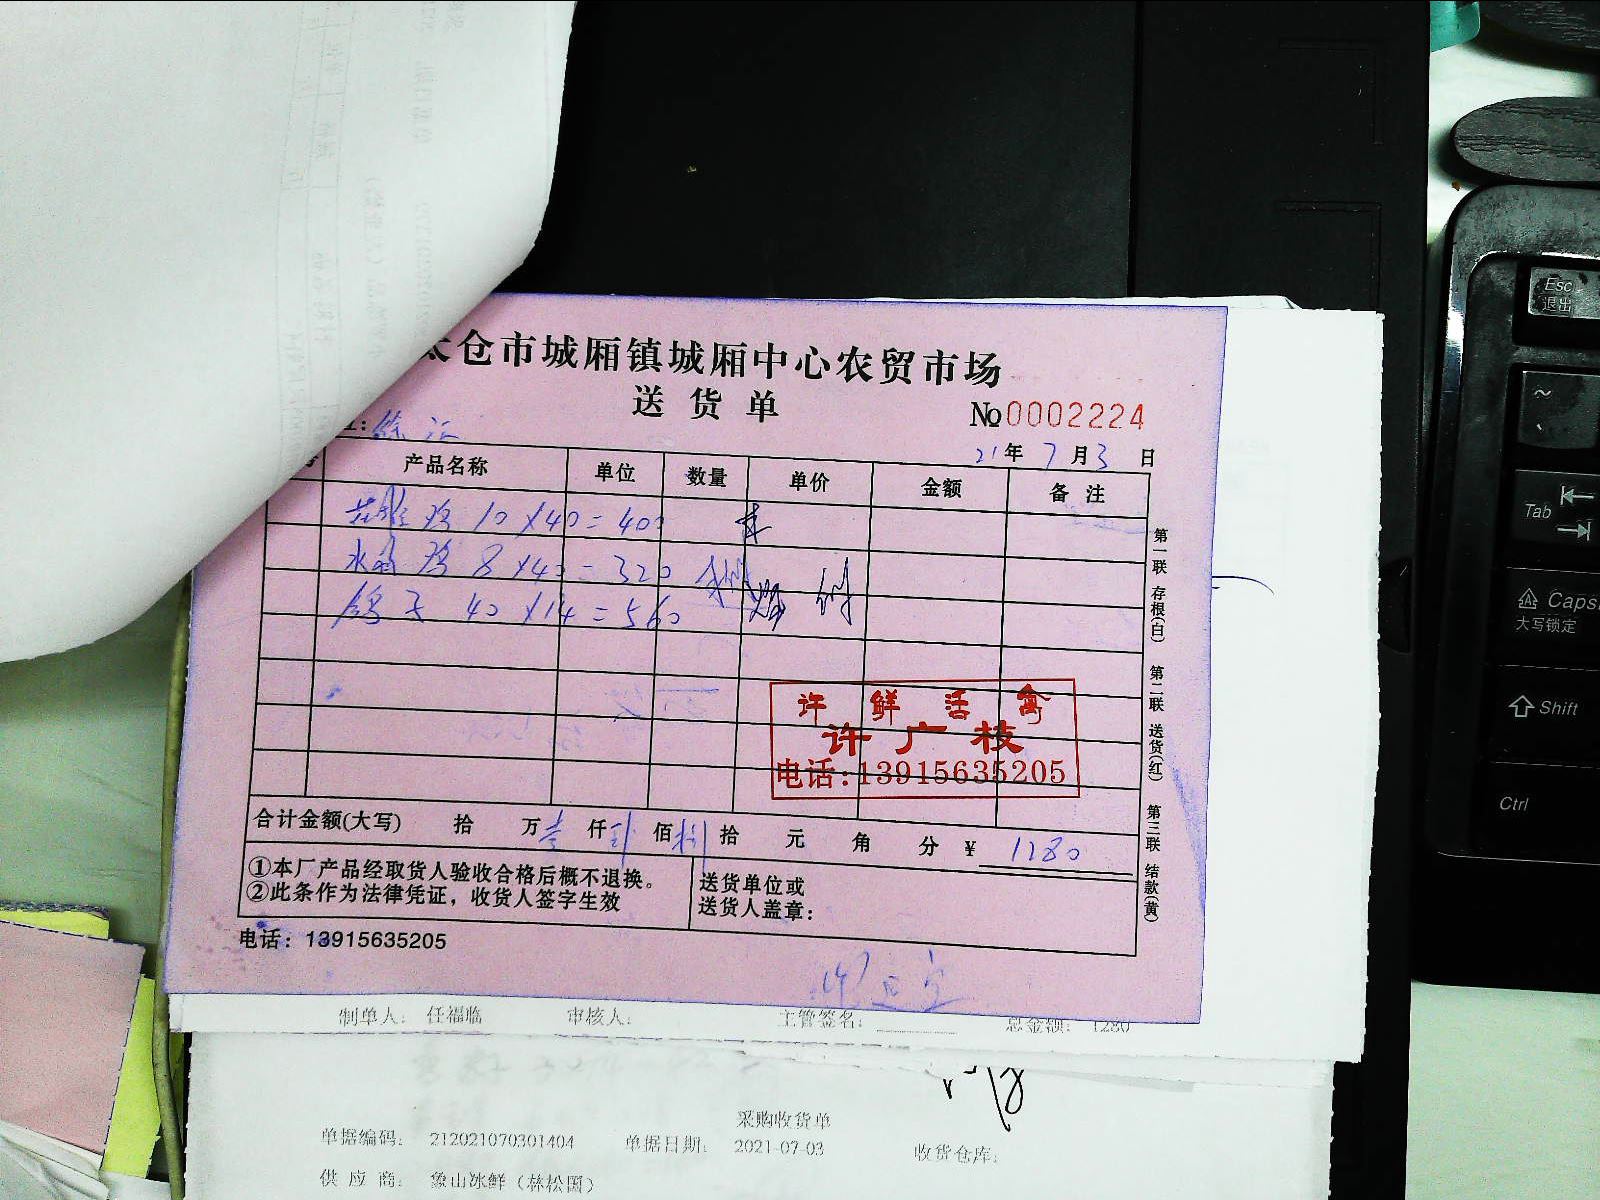 仓市城厢镇城厢中心农贸市场
送货单
No 0002224
21年7月3日
产品名称 单位 数量 单价 金额 备注
鸡 10×40=400
水 鸡 8×40=320
鸽子 40×14=560
第一联 存根(白) 第二联 送货(红) 第三联 结款(黄)
许鲜活禽
许广枝
电话:13915635205
合计金额(大写) 拾 万 壹 仟 贰 佰 捌 拾 元 角 分 ¥ 1280
①本厂产品经取货人验收合格后概不退换。
②此条作为法律凭证，收货人签字生效
送货单位或
送货人盖章：
电话：13915635205
制单人： 任福临 审核人： 主管签名： 总金额： 1280
采购收货单
单据编码： 212021070301404 单据日期： 2021-07-03 收货仓库：
供应商： 象山冰鲜（林松国）
Esc
退出
~
Tab
Caps
大写锁定
Shift
Ctrl